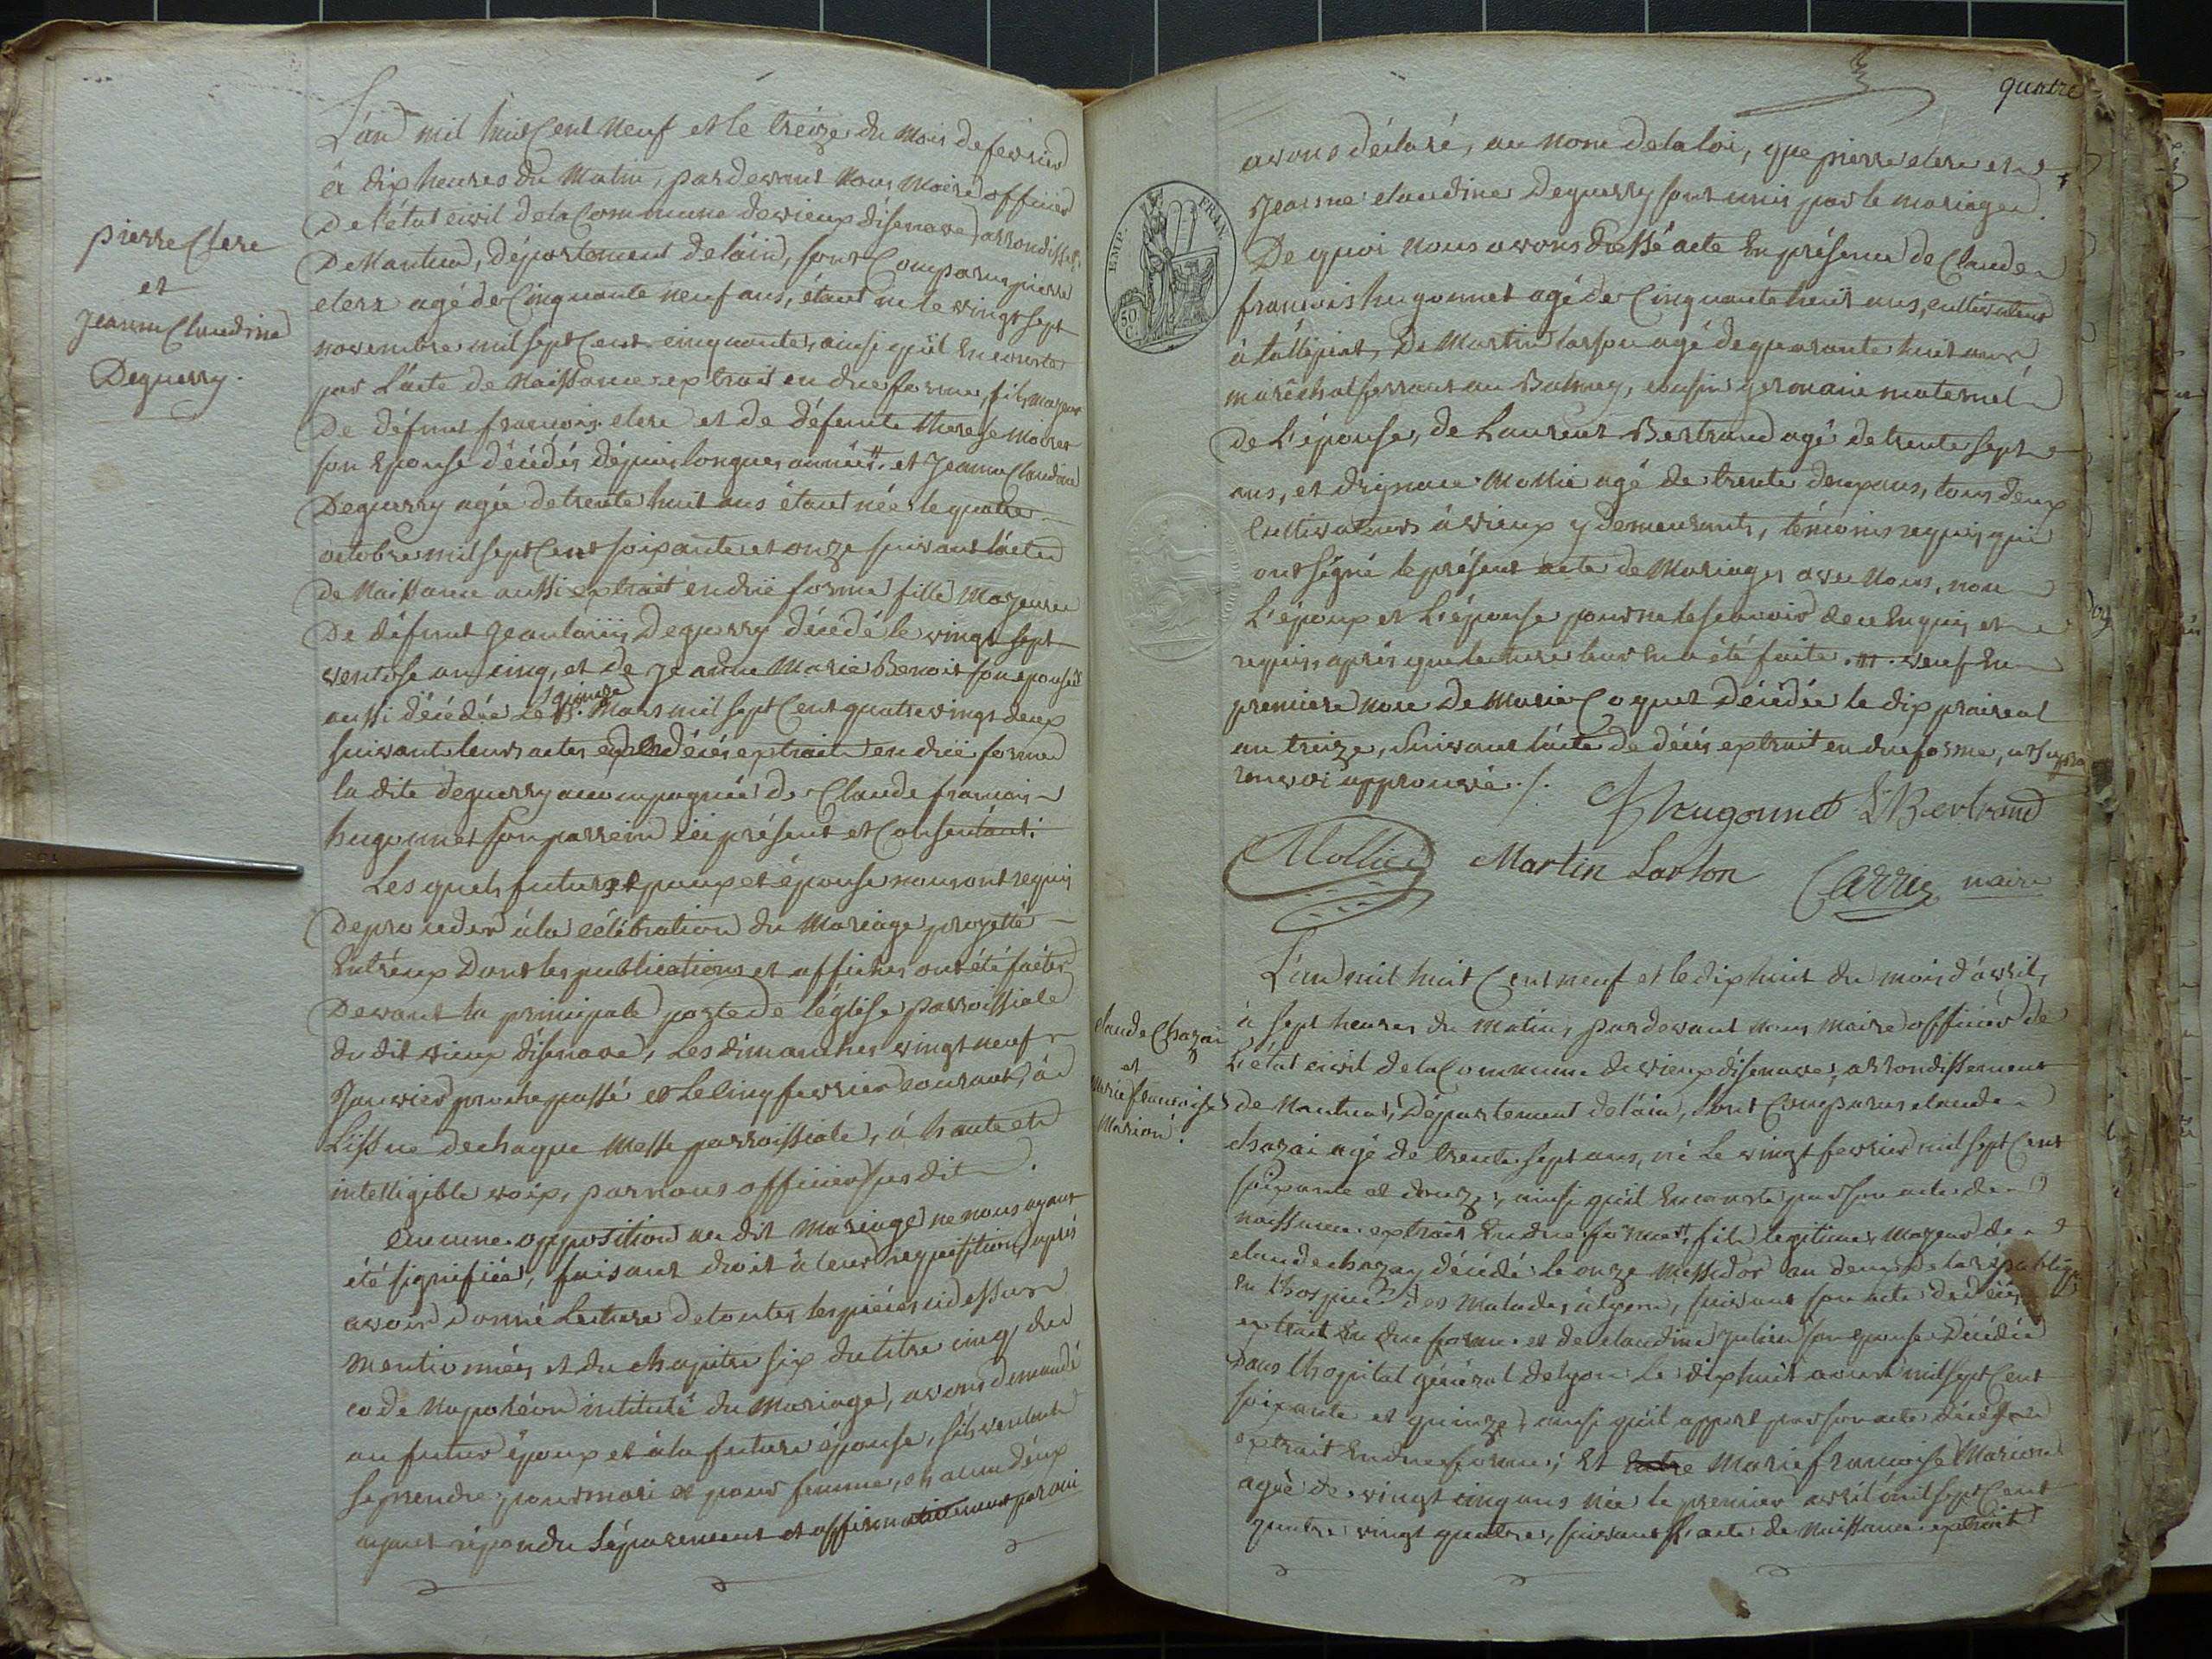 pierre Clerc
et
jeanne Claudine
Deguerry.
L'an mil huit Cent neuf et le treize du mois de fevrier
à dix heures du matin, pardevant nous maire officier
De l'état civil de la Commune de vieux disenave arrondisst.
De Nantua, département de l'ain, sont Comparus pierre
clerc agé de Cinquante neuf ans, étant né le vingt sept
novembre mil sept Cent cinquante, ainsi qu'il en conste
par L'acte de Naissance extrait en due forme, fils majeur
De défunt françois clerc et de défunte therese
son Epouse décédés dépuis longues années #. et Jeanne Claudine
Deguerry agée de trente huit ans étant née le quatre
octobre mil sept Cent soixante et onze suivant l'acte
De Naissance aussi extrait en drie forme fille Majeure
De défunt jean Deguerry décédé le vingt sept
ventose an cinq, et de jeanne Marie Benoit son epouse
aussi décédée Le quinze Mars mil sept Cent quatre vingt deux
suivant leurs actes de décés extraits en drie forme
la dite deguerry accompagnée de Claude françois
hugonnet son parrein ici présent et Consentant.
Les quels futurs epoux et épouse nous ont requis
De proceder à la célébration du Mariage projetté
Entr'eux Dont les publications et affiches ont été faites
Devant la principale porte de l'église parroissiale
du dit vieux disenave, Les dimanches vingt neuf
Janvier proche passé et Le cinq fevrier courant, à
L'issue de chaque Messe parroissiale, à haute et
intelligible voix, par nous officier susdit.
Aucune opposition au dit Mariage ne nous ayant
été signifiée, faisant droit à leur requisition, après
avoir Donné Lecture de toutes les pièces ci dessus
mentionnées et du chapitre six du titre cinq du
code Napoléon intitulé du Mariage, avons demandé
au futur époux et à la future épouse, s'ils veulent
se prendre pour mari et pour femme, chacun d'eux
ayant répondu séparement et affirmativement
quatre
avons déclaré, au nom de la loi, que pierre clerc et
Jeanne claudine Deguerry sont unis par le mariage.
De quoi nous avons dressé acte En présence de Claude
françois hugonnet agé de Cinquante huit ans, cultivateur
à tallipiat, De Martin larson agé de quarante huit ans
maréchal ferrant au Balmey, cousin germain maternel
De L'épouse, de Laurent Bertrand agé de trente sept
ans, et dignace Mollie agé de trente deux ans, tous deux
Cultivateurs à vieux y demeurants, témoins requis, qui
ont signé le présent acte de Mariage avec Nous, non
L'époux et L'épouse pour ne le scavoir de ce Enquis et
requis, après que lecture leur En a été faite. #. veuf En
premiere noce De Marie Coquet Décédée le dix prairial
an treize, Suivant l'acte de décés extrait en due forme, et
renvoi approuvé ./.
EMP. FRAN.
50
C.
Hugonnet L Bertrand
Mollie Martin Larson Carrier maire
claude Chazai
et
Marie françoise
Marion.
L'an mil huit Cent neuf et le dix huit du mois d'avril,
à sept heures du matin, pardevant nous maire officier de
L'état civil de la Commune de vieux disenave, arrondissement
de Nantua, Département de l'ain, sont Comparus claude
chazai agé de trente sept ans, né Le vingt fevrier mil sept Cent
soixante et douze, ainsi qu'il En conste par son acte de
naissance extrait En due forme #. fils legitime, Majeur de
claude chazay décédé Le onze Messidor an deux de la république
En l'hospice des Malades à lyon, suivant son acte de décès
extrait En due forme. et de claudine julien son epouse Décédée
Dans l'hopital général de lyon Le dix huit mil sept Cent
soixante et quinze, ainsi qu'il appert par son acte décès
extrait En due forme; Et Entre Marie françoise Marion
agée de vingt cinq ans née le premier avril mil sept Cent
quatre vingt quatre, suivant L'acte de Naissance extrait